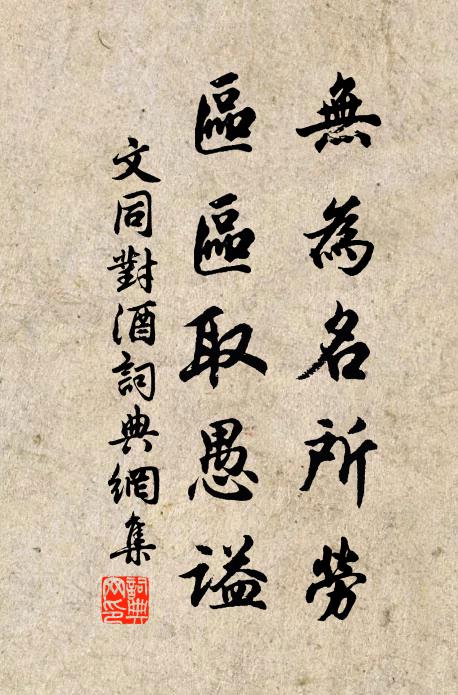 無為名所勞
區區取愚謚
文同對酒詞典網集
詞典
网印